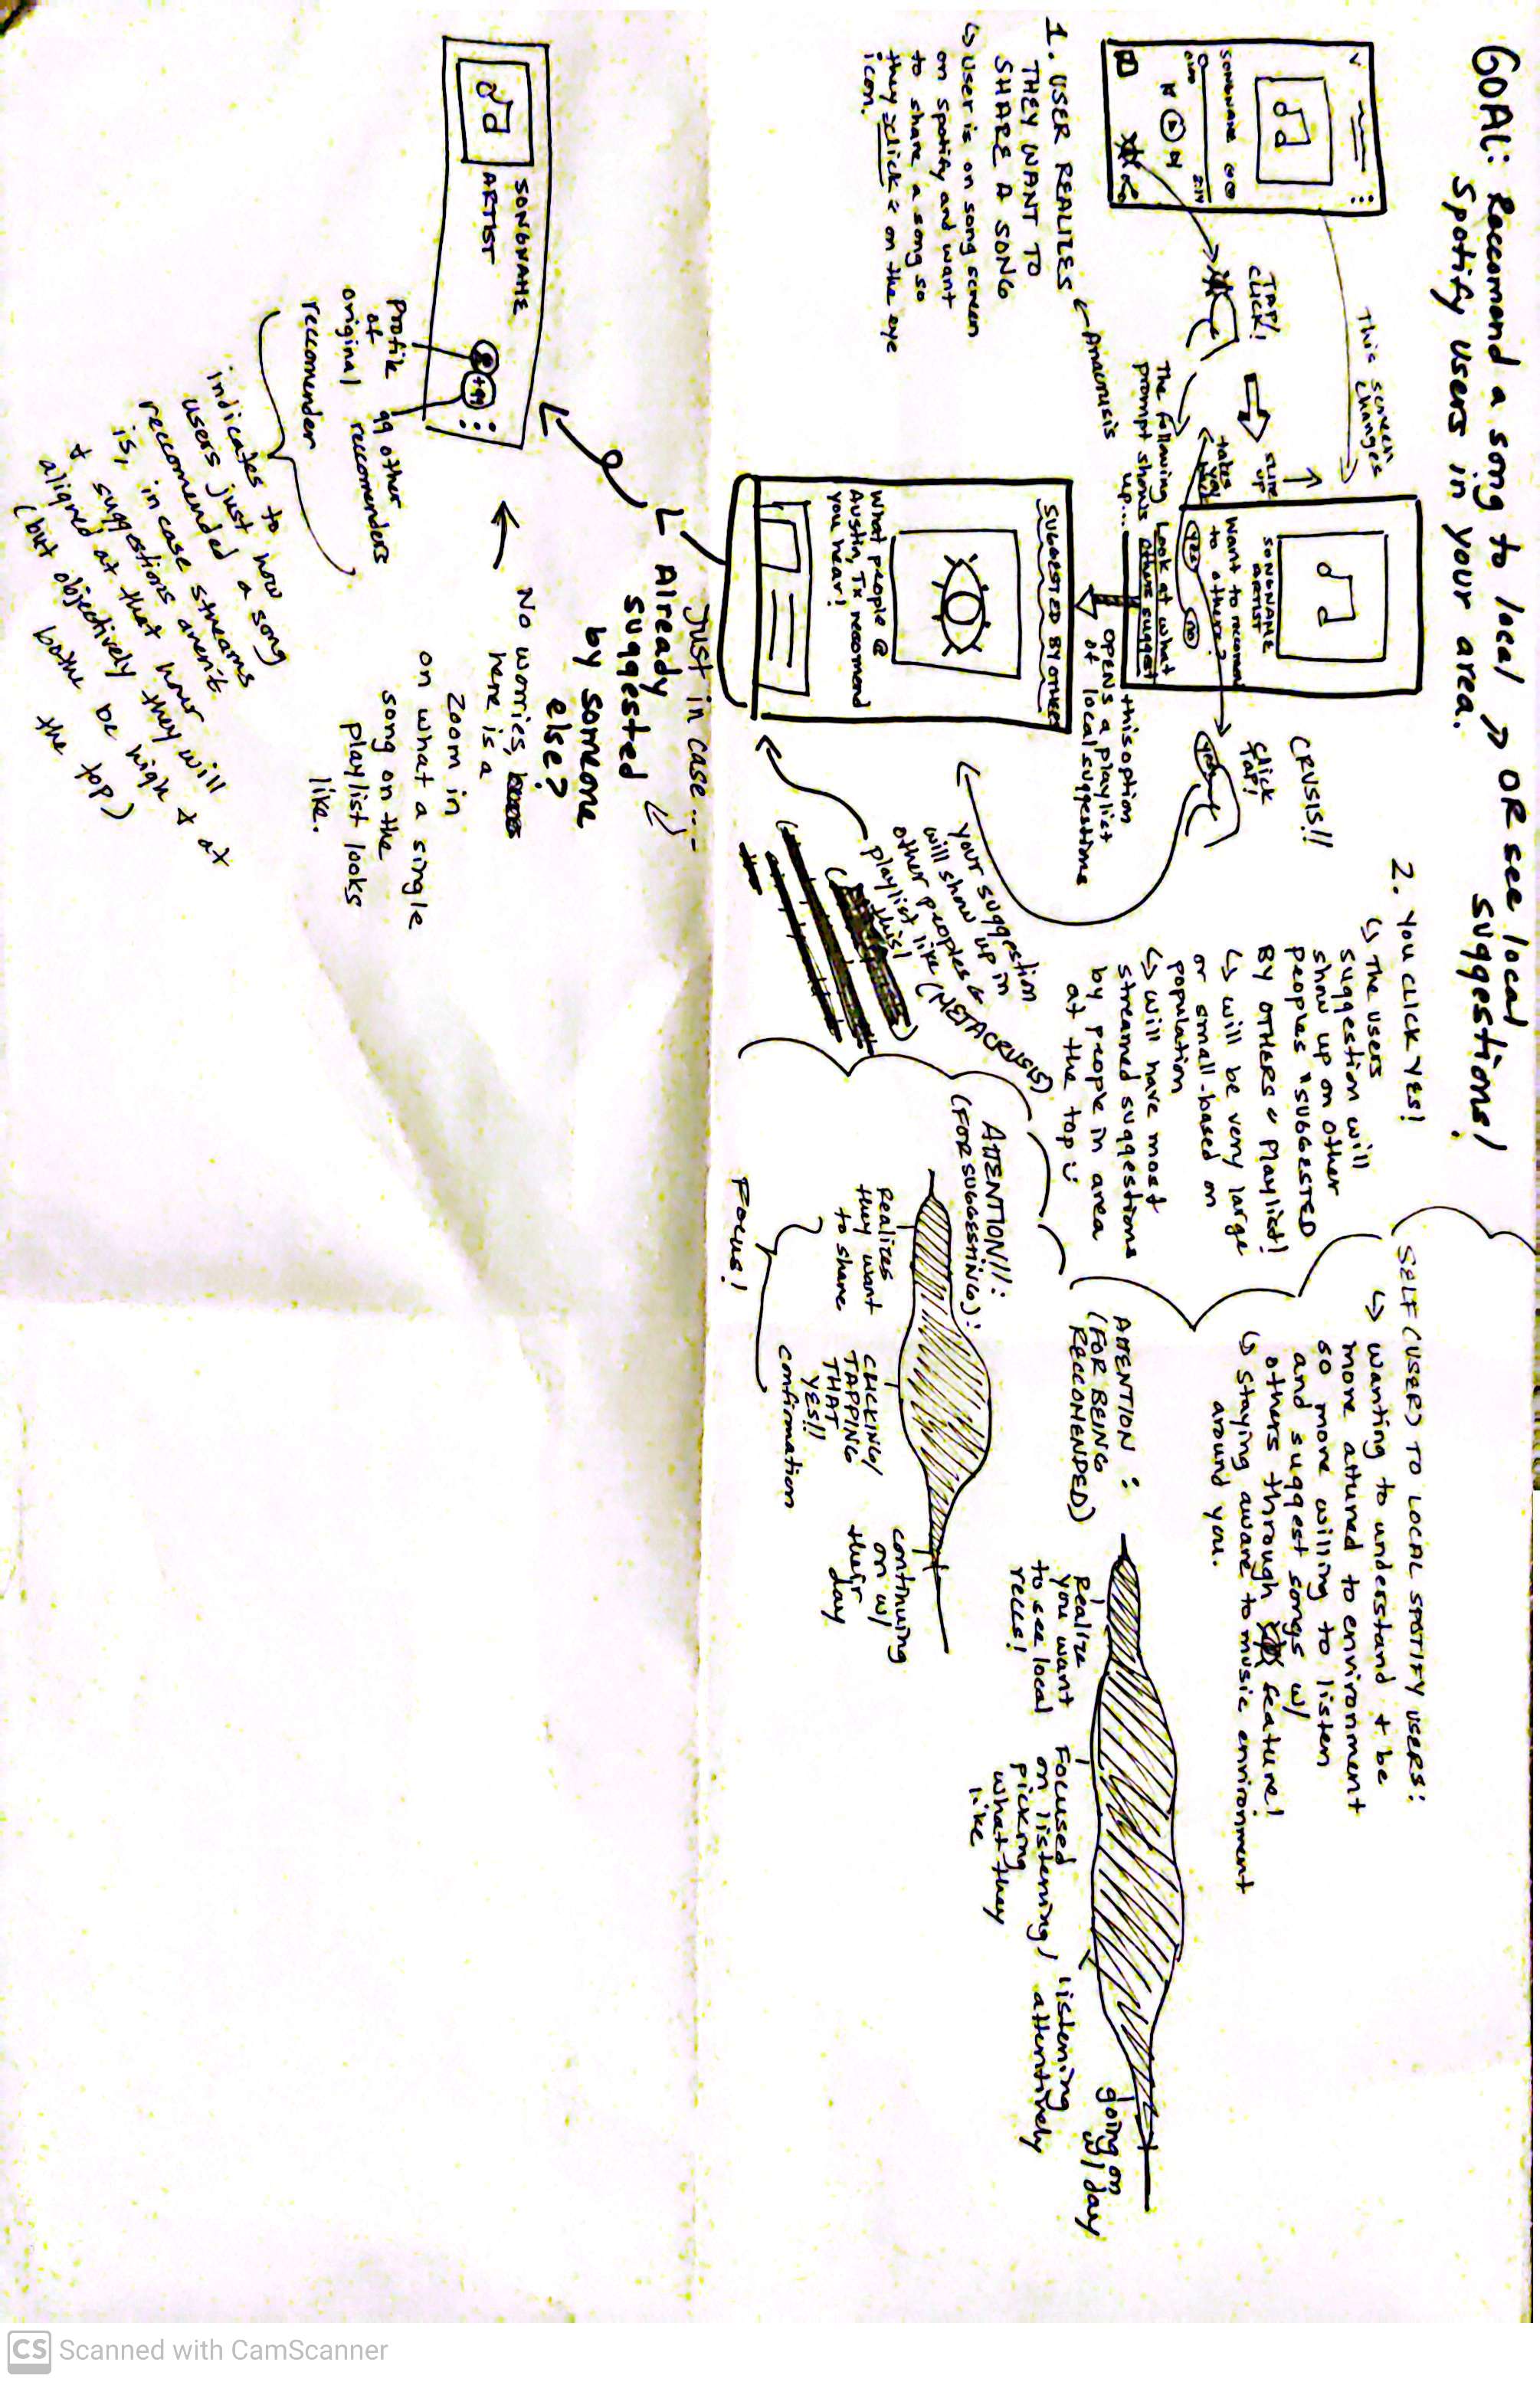 GOAL: Reccomend a song to local >> OR see local
Spotify users in your area. suggestions!
SONGNAME
2:14
This screen changes
TAP!
CLICK!
sure
up
takes
you
The following
prompt shows
up...
1. USER REALIZES
THEY WANT TO
SHARE A SONG
Anacrusis
↳ User is on song screen
on spotify and want
to share a song so
they "click" on the eye
icon.
SONGNAME
ARTIST
Want to recomend
to others?
YES NO
Look at what
others suggest
this option
OPENS a playlist
of local suggestions
CRUSIS!!
CLICK
TAP!
SUGGESTED BY OTHERS
What people @
Austin, Tx recomend
you hear!
your suggestion
will show up in
other peoples
playlist like
this! (METACRUSIS)
2. YOU CLICK YES!
↳ The users
suggestion will
show up on other
peoples "SUGGESTED
BY OTHERS" Playlist!
↳ will be very large
or small-based on
population
↳ will have most
streamed suggestions
by people in area
at the top :)
SELF (USER) TO LOCAL SPOTIFY USERS:
↳ wanting to understand + be
more attuned to environment
so more willing to listen
and suggest songs w/
others through feature!
↳ Staying aware to music environment
around you.
ATTENTION:
(FOR BEING
RECCOMENDED)
Realize
you want
to see local
reccs!
Focused
on listening/
picking
what they
like
listening
attentively
going on
w/ day
ATTENTION!!:
(FOR SUGGESTING):
Realizes
they want
to share
CLICKING/
TAPPING
THAT
YES!!
confirmation
continuing
on w/
their
day
Focus!
Just in case...
Already
suggested
by someone
else?
No worries,
here is a
zoom in
on what a single
song on the
playlist looks
like.
SONGNAME
ARTIST
+99
Profile
of
original
reccomender
99 other
reccomenders
indicates to how
users just now
reccomended a song
is, in case streams
+ suggestions aren't
aligned at that hour
(but objectively they will
both be high & at
the top)
CS Scanned with CamScanner